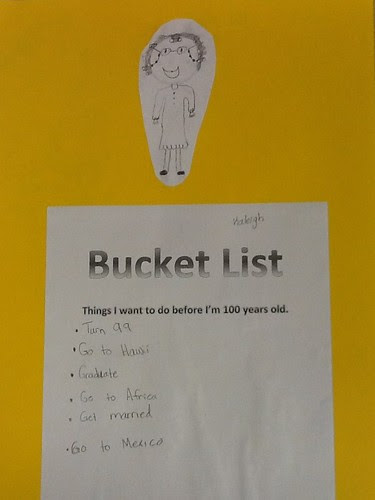 Kaleigh
Bucket List
Things I want to do before I'm 100 years old.
• Turn 99
• Go to Hawii
• Graduate
• Go to Africa
• Get married
• Go to Mexico